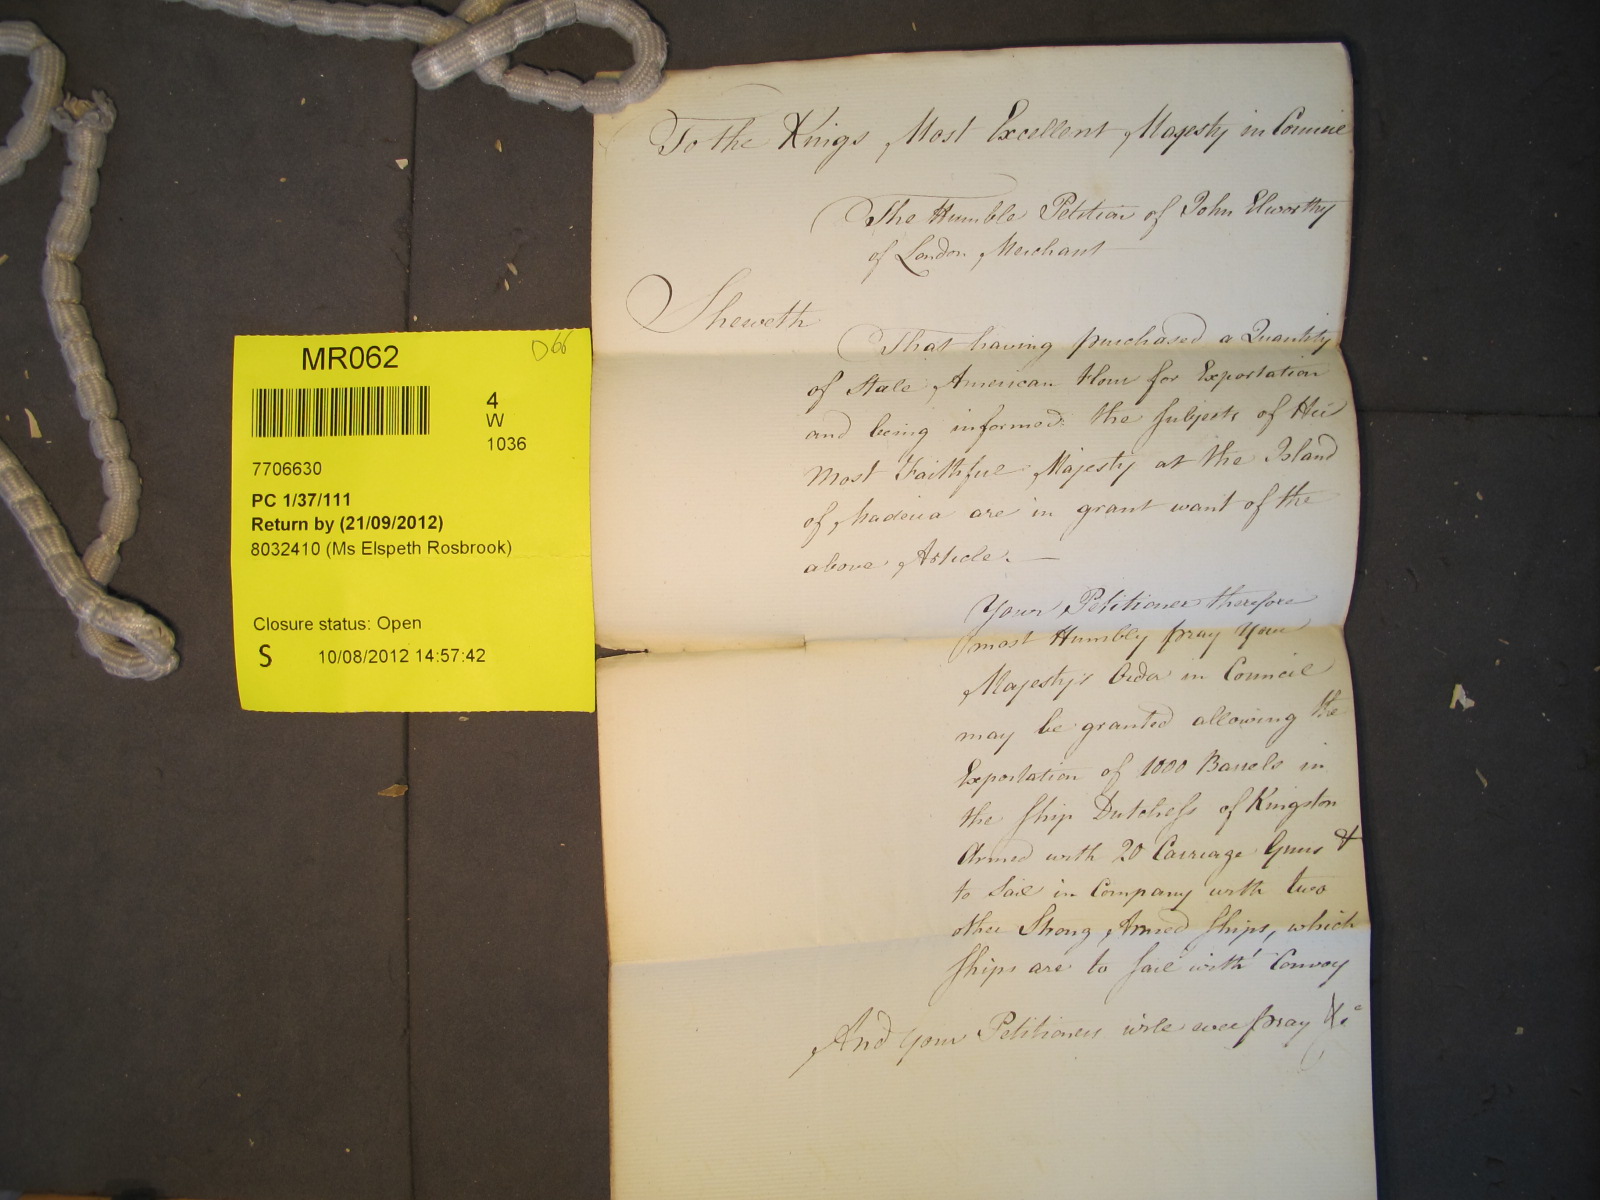 MR062
D66
4
W
1036
7706630
PC 1/37/111
Return by (21/09/2012)
8032410 (Ms Elspeth Rosbrook)
Closure status: Open
S 10/08/2012 14:57:42
To the Kings Most Excellent Majesty in Council
The Humble Petition of John Elworthy
of London Merchant
Sheweth
That having purchased a Quantity
of Stale American flour for Exportation
and being informed the Subjects of His
Most Faithful Majesty at the Island
of Madeira are in great want of the
above Article.
Your Petitioner therefore
most Humbly pray Your
Majesty's Order in Council
may be granted allowing the
Exportation of 1000 Barrels in
the Ship Dutchess of Kingston
Armed with 20 Carriage Guns &
to Sail in Company with two
other Strong Armed Ships, which
Ships are to Sail with Convoy
And your Petitioners will ever pray &c